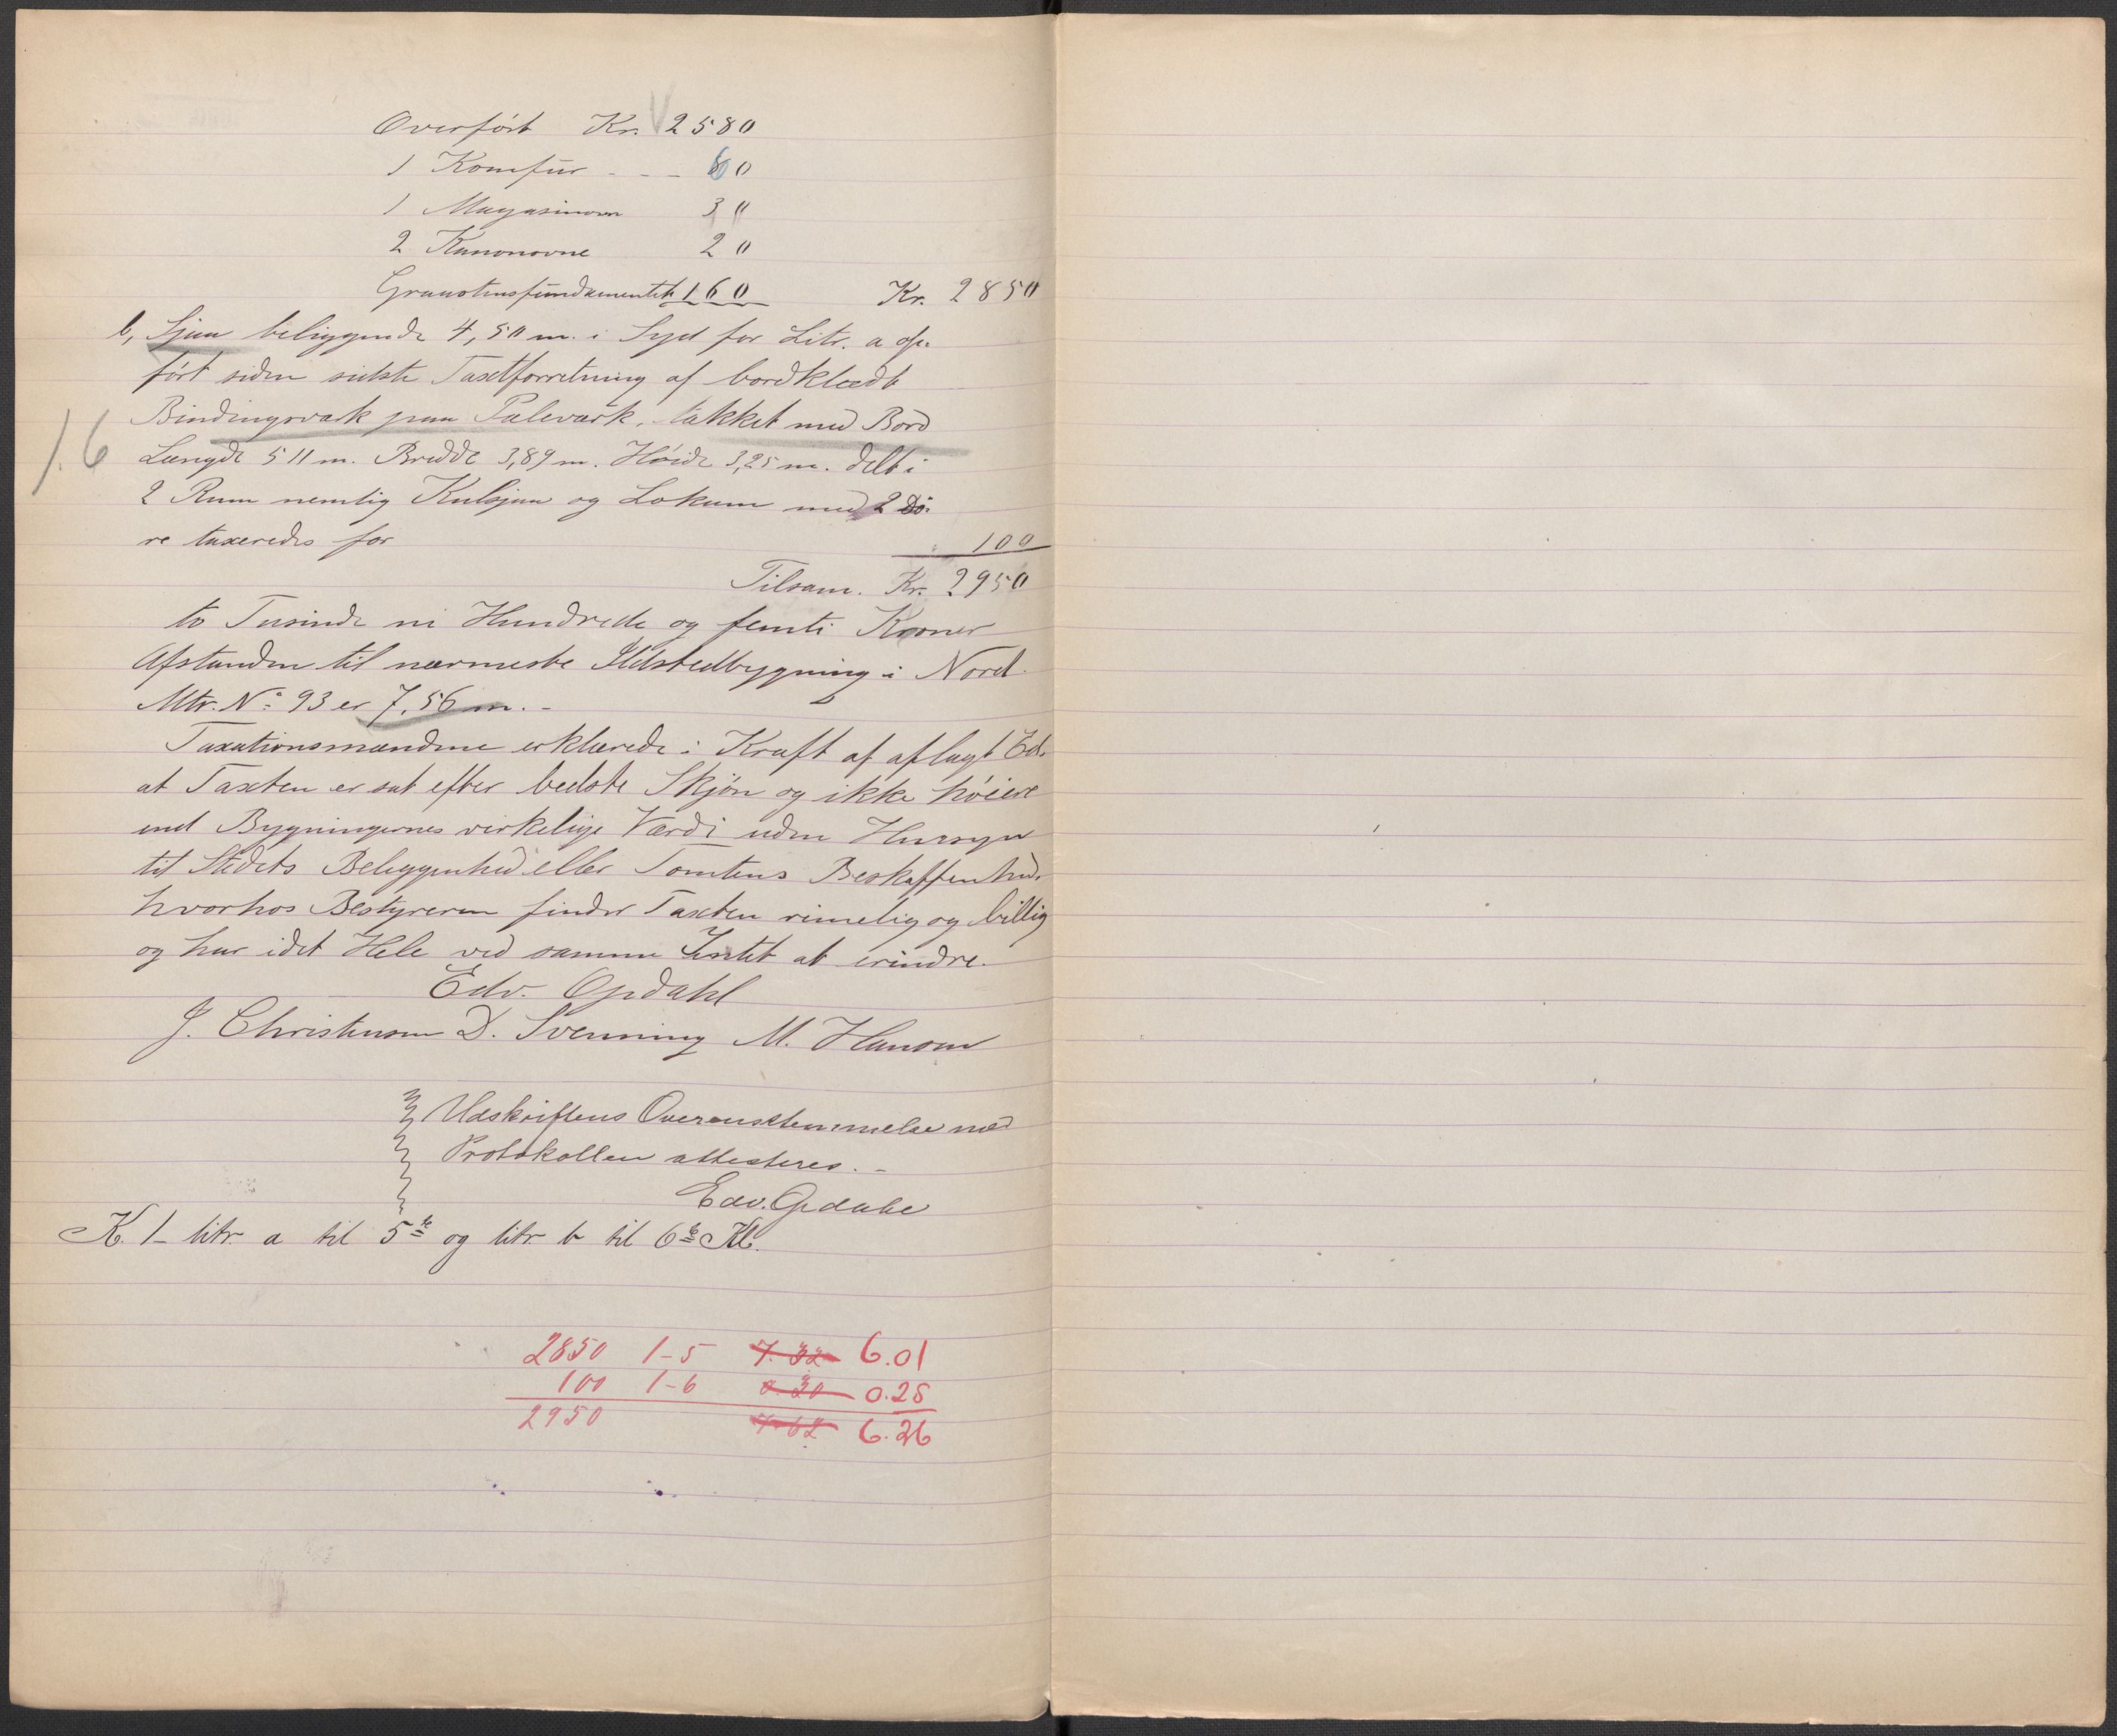 Overført Kr. 2580
1 Komfur - - - 60
1 Magasinovn 30
2 Kanonovne 20
Graastensfundamentet 160 Kr. 2850
b, Sjaa beliggende 4,50 m. i Syd for Litr. a op-
ført siden sidste Taxtforretning af bordklædt
Bindingsværk paa Pæleværk, tækket med Bord
1.6 Længde 511 m. Bredde 3,89 m. Høide 3,25 m. delt i
2 Rum nemlig Kulsjaa og Lokum med 2 Dö-
re taxeredes for 100
Tilsam. Kr. 2950
to Tusinde ni Hundrede og femti Kroner
Afstanden til nærmeste Ildstedbygning i Nord
Mtr. No 93 er 7,56 m. -
Taxationsmændene erklærede i Kraft af aflagt Ed.
at Taxten er sat efter bedste Skjøn og ikke høiere
end Bygningernes virkelige Værdi uden Hensyn
til Stedets Beliggenhed eller Tomtens Beskaffenhed.
hvorhos Bestyreren finder Taxten rimelig og billig
og har idet Hele ved samme Intet at erindre.
Edv. Opdahl
J. Christensen D. Svenning M. Hanson
Udskriftens Overensstemmelse med
Protokollen attesteres. -
Edv. Opdahl
K. 1 - litr. a til 5te og litr. b til 6te Kl.
2850 1-5 7.32 6.01
100 1-6 0.30 0.25
2950 7.62 6.26